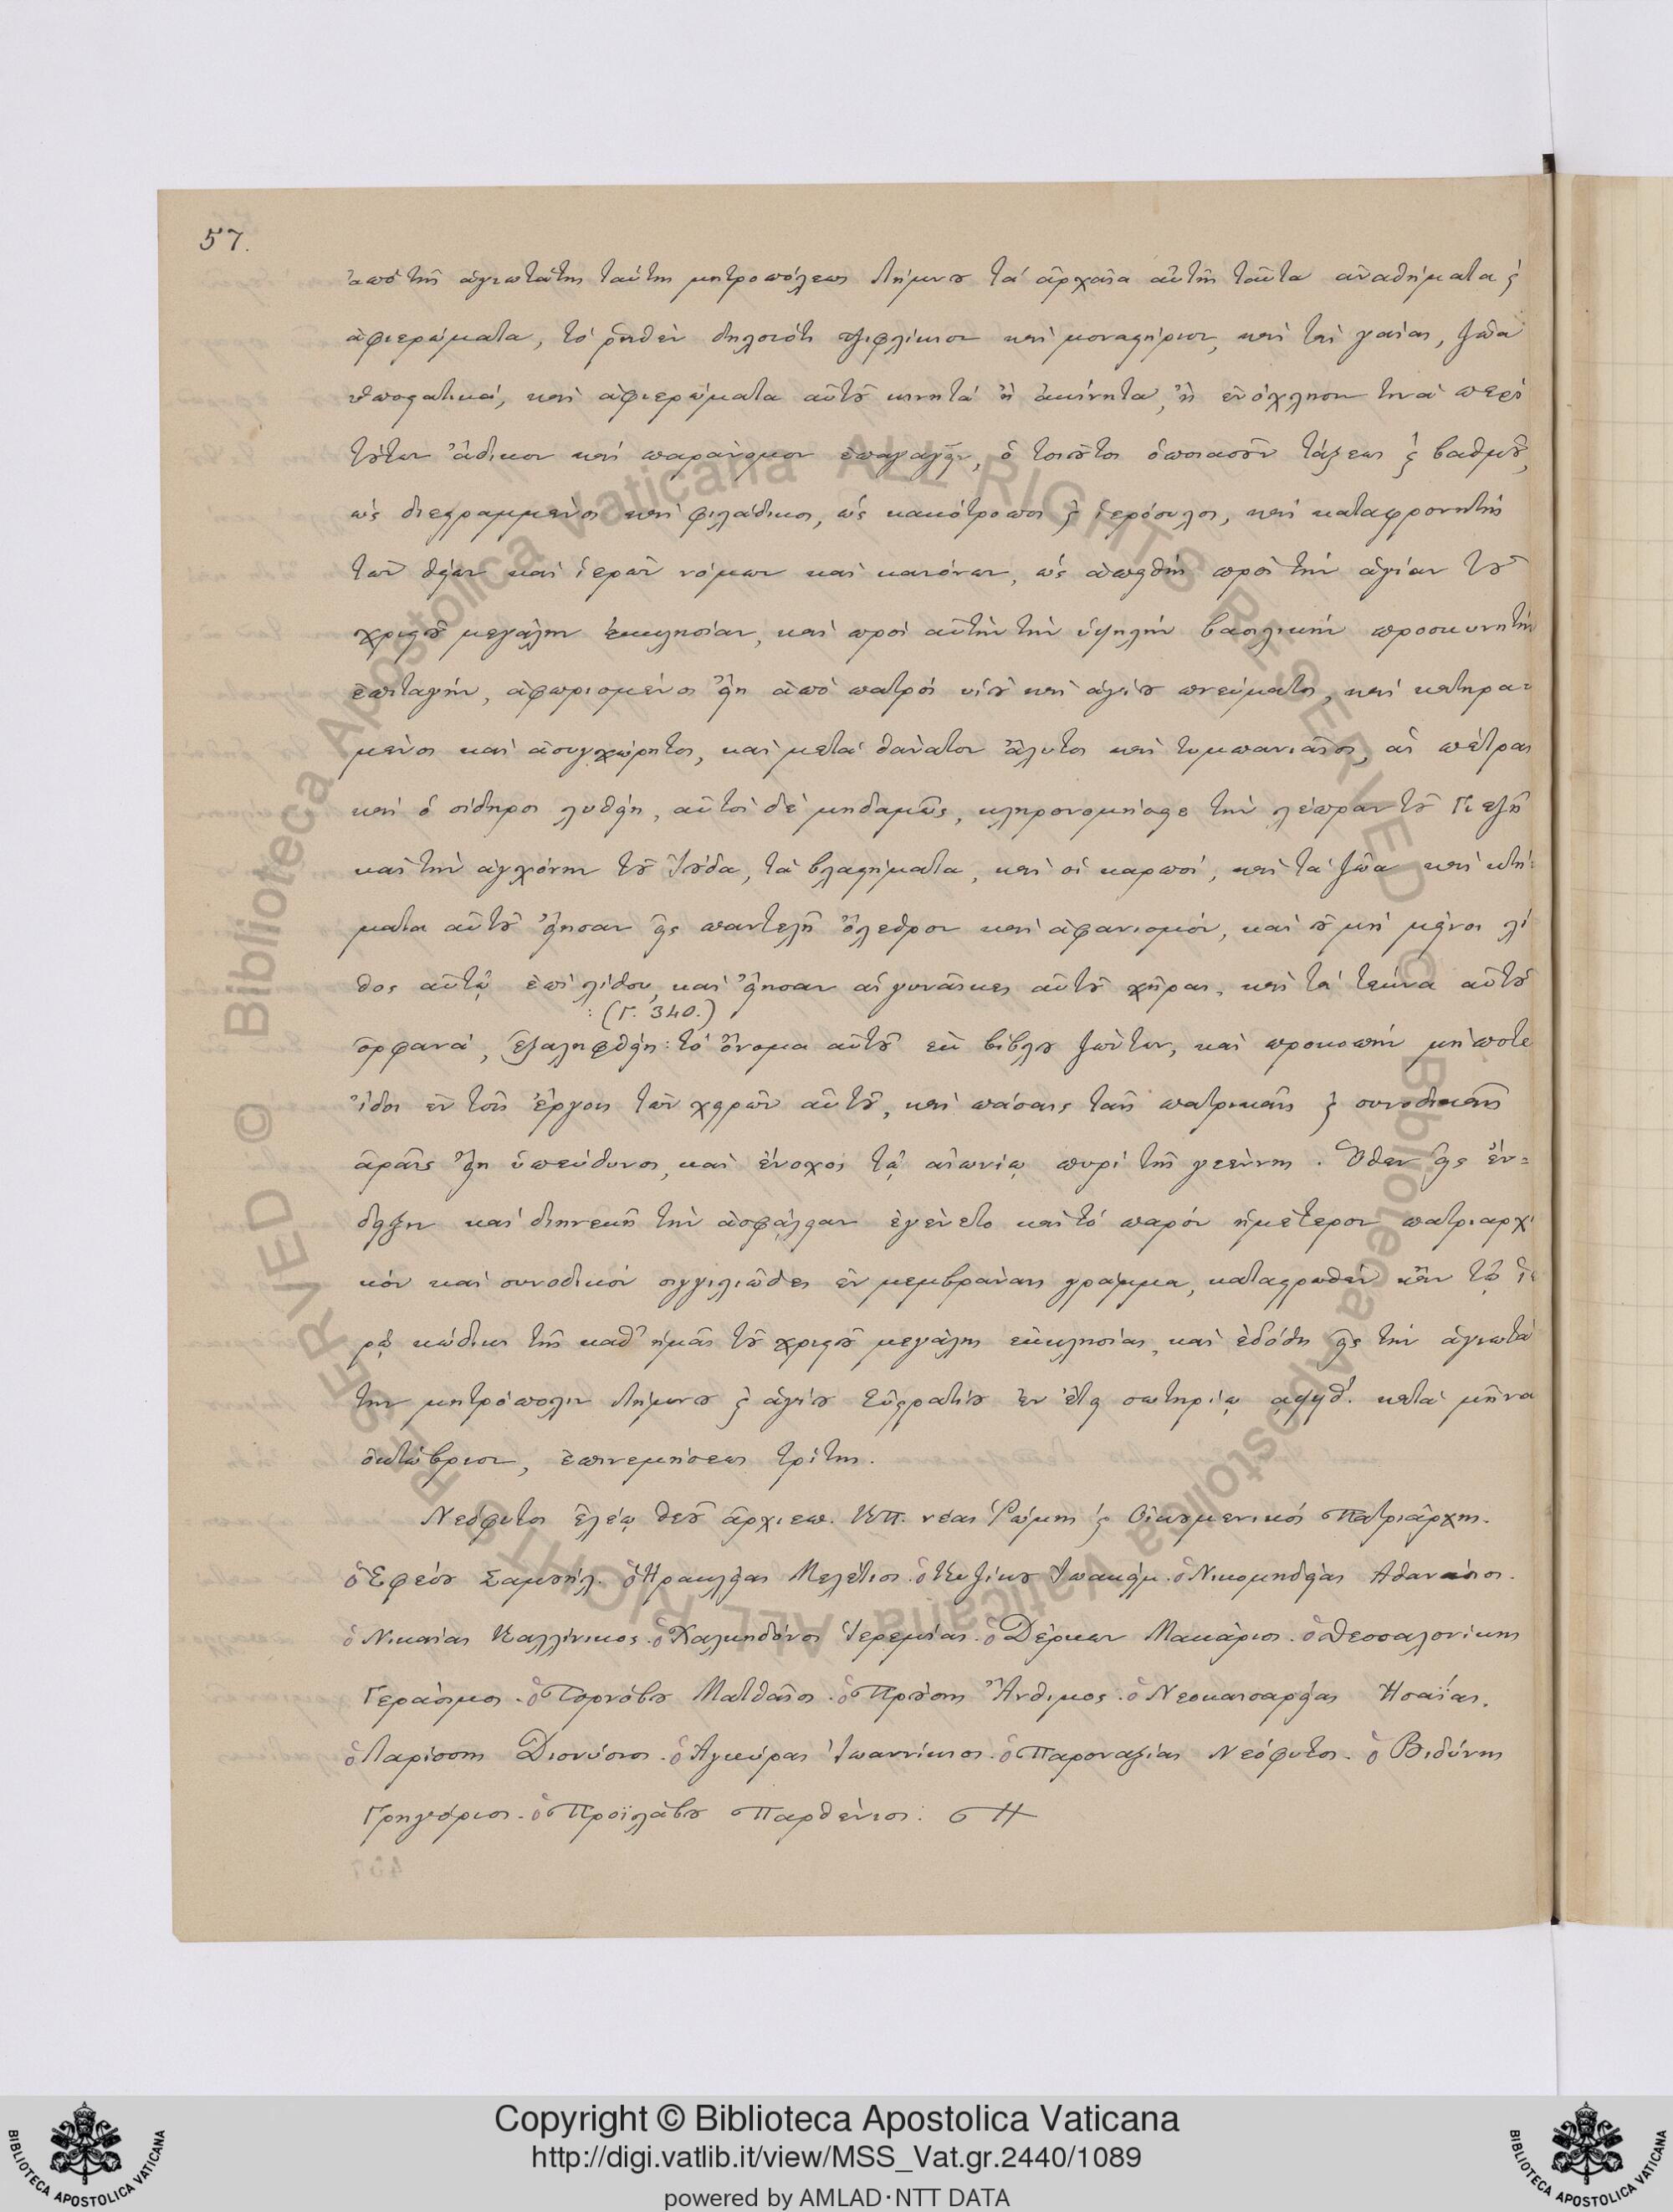 57.
ἀπὸ τῆς ἁγιωτάτης ταύτης μητροπόλεως Λήμνου τὰ ἀρχαῖα αὐτῆς ταῦτα ἀναθήματα ϗ
ἀφιερώματα, τὸ ῥηθὲν δηλονότι τζιφλίκιον καὶ μοναστήριον, καὶ τὰς γαίας, ζῶα
ὑποστατικά, καὶ ἀφιερώματα αὐτοῦ κινητὰ ἢ ἀκίνητα, ἢ ἐνόχλησιν τινὰ περὶ
τούτων ἄδικον καὶ παράνομον ἐπαγάγῃ, ὁ τοιοῦτος ὁποιασοῦν τάξεως ϗ βαθμοῦ,
ὡς διεστραμμένος καὶ φιλάδικος, ὡς κακότροπος ϗ ἱερόσυλος, καὶ καταφρονητὴς
τῶν θείων καὶ ἱερῶν νόμων καὶ κανόνων, ὡς ἀπειθὴς πρὸς τὴν ἁγίαν τοῦ
χριστοῦ μεγάλην ἐκκλησίαν, καὶ πρὸς αὐτὴν τὴν ὑψηλὴν βασιλικὴν προσκυνητὴν
ἐπιταγήν, ἀφωρισμένος εἴη ἀπὸ πατρὸς υἱοῦ καὶ ἁγίου πνεύματος, καὶ κατηρα=
μένος καὶ ἀσυγχώρητος, καὶ μετὰ θάνατον ἄλυτος καὶ τυμπανιαῖος, αἱ πέτραι
καὶ ὁ σίδηρος λυθείη, αὐτὸς δὲ μηδαμῶς, κληρονομήσειε τὴν λέπραν τοῦ Γιεζῆ
καὶ τὴν ἀγχόνην τοῦ Ἰούδα, τὰ βλαστήματα, καὶ οἱ καρποί, καὶ τὰ ζῶα καὶ κτή=
ματα αὐτοῦ εἴησαν εἰς παντελῆ ὄλεθρον καὶ ἀφανισμόν, καὶ οὐ μὴ μείνοι λί
θος αὐτῷ ἐπὶ λίθου, καὶ εἴησαν αἱ γυναῖκες αὐτοῦ χῆραι, καὶ τὰ τέκνα αὐτοῦ
: (Γ. 340.)
ὀρφανά, ἐξαλειφθείη: τὸ ὄνομα αὐτοῦ ἐκ βίβλου ζώντων, καὶ προκοπὴν μήποτε
ἴδοι ἐν τοῖς ἔργοις τῶν χειρῶν αὐτοῦ, καὶ πάσαις ταῖς πατρικαῖς ϗ συνοδικαῖς
ἀραῖς εἴη ὑπεύθυνος, καὶ ἔνοχος τῷ αἰωνίῳ πυρὶ τῆς γεέννης. Ὅθεν εἰς ἔν=
δειξιν καὶ διηνεκῆ τὴν ἀσφάλειαν ἐγένετο καὶ τὸ παρὸν ἡμέτερον πατριαρχι
κὸν καὶ συνοδικὸν σιγγιλιῶδες ἐν μεμβράναις γράμμα, καταστρωθὲν κἀν τῷ ἱε
ρῷ κώδικι τῆς καθ' ἡμᾶς τοῦ χριστοῦ μεγάλης ἐκκλησίας, καὶ ἐδόθη εἰς τὴν ἁγιωτά
την μητρόπολιν Λήμνου ϗ ἁγίου Εὐστρατίου ἐν ἔτει σωτηρίῳ αψϟθʹ. κατὰ μῆνα
ὀκτώβριον, ἐπινεμήσεως τρίτης.
Νεόφυτος ἐλέῳ θεοῦ ἀρχιεπ. ΚΠ. νέας Ῥώμης ϗ Οἰκουμενικὸς Πατριάρχης.
ὁ Ἐφέσου Σαμουήλ. ὁ Ἡρακλείας Μελέτιος. ὁ Κυζίκου Ἰωακείμ. ὁ Νικομηδείας Ἀθανάσιος.
ὁ Νικαίας Καλλίνικος. ὁ Χαλκηδόνος Ἱερεμίας. ὁ Δέρκων Μακάριος. ὁ Θεσσαλονίκης
Γεράσιμος. ὁ Τορνόβου Ματθαῖος. ὁ Προύσης Ἄνθιμος. ὁ Νεοκαισαρείας Ἡσαΐας.
ὁ Λαρίσσης Διονύσιος. ὁ Ἀγκύρας Ἰωαννίκιος. ὁ Παροναξίας Νεόφυτος. ὁ Βιδύνης
Γρηγόριος. ὁ Προϊλάβου Παρθένιος:
Copyright © Biblioteca Apostolica Vaticana
http://digi.vatlib.it/view/MSS_Vat.gr.2440/1089
powered by AMLAD·NTT DATA
BIBLIOTECA APOSTOLICA VATICANA
BIBLIOTECA APOSTOLICA VATICANA
© Biblioteca Apostolica Vaticana ALL RIGHTS RESERVED © Biblioteca Apostolica Vaticana ALL RIGHTS RESERVED